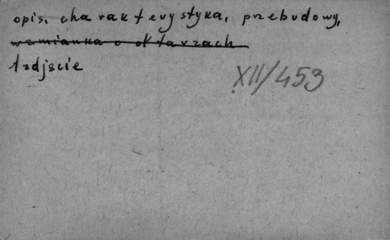 opis, charakterystyka, przebudowy,
wzmianka o ołtarzach
1 zdjęcie
XII/453